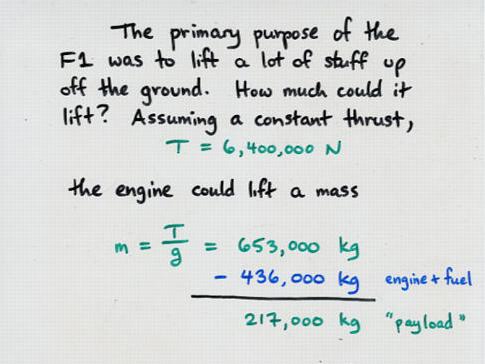 The primary purpose of the
F1 was to lift a lot of stuff up
off the ground. How much could it
lift? Assuming a constant thrust,
T = 6,400,000 N
the engine could lift a mass
m = T/g = 653,000 kg
- 436,000 kg engine + fuel
217,000 kg "payload"